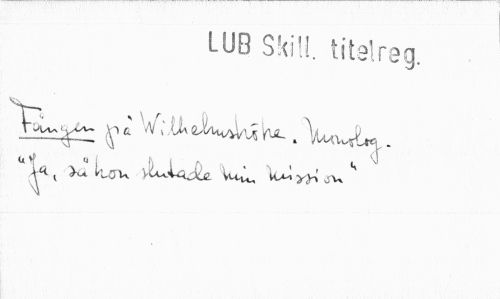 LUB Skill. titelreg.
Fången på Wilhelmshöhe. Monolog.
"Ja, så hon slutade min mission"